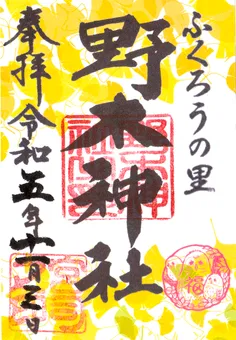 ふくろうの里
野木神社
奉拝 令和五年十一月三日